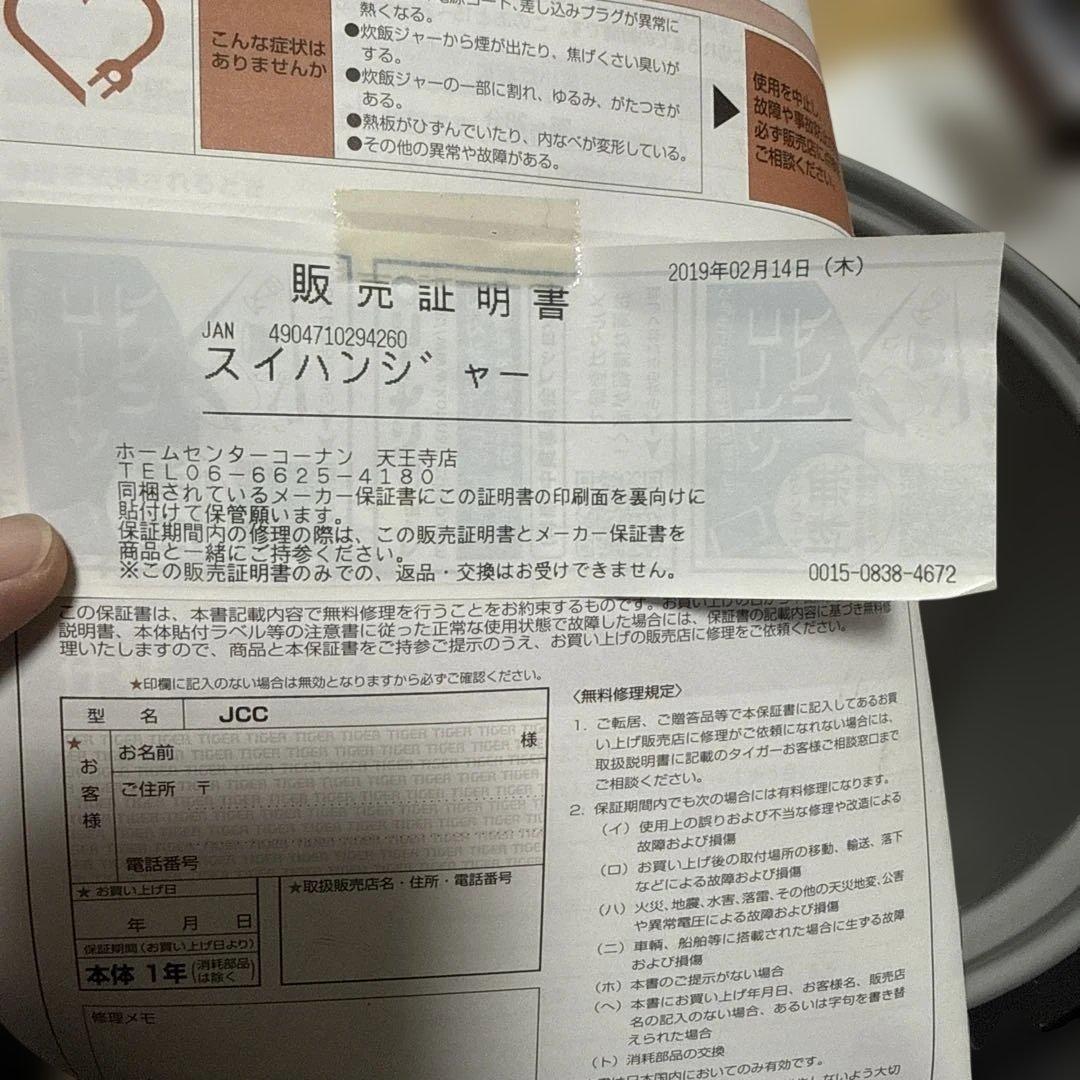 差し込みプラグが異常に
熱くなる。
こんな症状は
ありませんか
●炊飯ジャーから煙が出たり、焦げくさい臭いが
する。
●炊飯ジャーの一部に割れ、ゆるみ、がたつきが
ある。
●熱板がひずんでいたり、内なべが変形している。
●その他の異常や故障がある。
使用を中止し
故障や事故
必ず販売店に
ご相談ください。
販売証明書
2019年02月14日（木）
JAN 4904710294260
スイハンジャー
ホームセンターコーナン 天王寺店
TEL06-6625-4180
同梱されているメーカー保証書にこの証明書の印刷面を裏向けに
貼付けて保管願います。
保証期間内の修理の際は、この販売証明書とメーカー保証書を
商品と一緒にご持参ください。
※この販売証明書のみでの、返品・交換はお受けできません。
0015-0838-4672
この保証書は、本書記載内容で無料修理を行うことをお約束するものです。お買い上げの日から
説明書、本体貼付ラベル等の注意書に従った正常な使用状態で故障した場合には、保証書の記載内容に基づき無料修
理いたしますので、商品と本保証書をご持参ご提示のうえ、お買い上げの販売店に修理をご依頼ください。
★印欄に記入のない場合は無効となりますから必ずご確認ください。
型名 JCC
★お客様
お名前 様
ご住所 〒
電話番号
★お買い上げ日
年 月 日
保証期間(お買い上げ日より)
本体 1年(消耗部品は除く)
★取扱販売店名・住所・電話番号
修理メモ
〈無料修理規定〉
1. ご転居、ご贈答品等で本保証書に記入してあるお買
い上げ販売店に修理がご依頼になれない場合には、
取扱説明書に記載のタイガーお客様ご相談窓口まで
ご相談ください。
2. 保証期間内でも次の場合には有料修理になります。
（イ）使用上の誤りおよび不当な修理や改造による
故障および損傷
（ロ）お買い上げ後の取付場所の移動、輸送、落下
などによる故障および損傷
（ハ）火災、地震、水害、落雷、その他の天災地変、公害
や異常電圧による故障および損傷
（ニ）車輌、船舶等に搭載された場合に生ずる故障
および損傷
（ホ）本書のご提示がない場合
（ヘ）本書にお買い上げ年月日、お客様名、販売店
名の記入のない場合、あるいは字句を書き替
えられた場合
（ト）消耗部品の交換
は日本国内においてのみ有効です。
しないよう大切